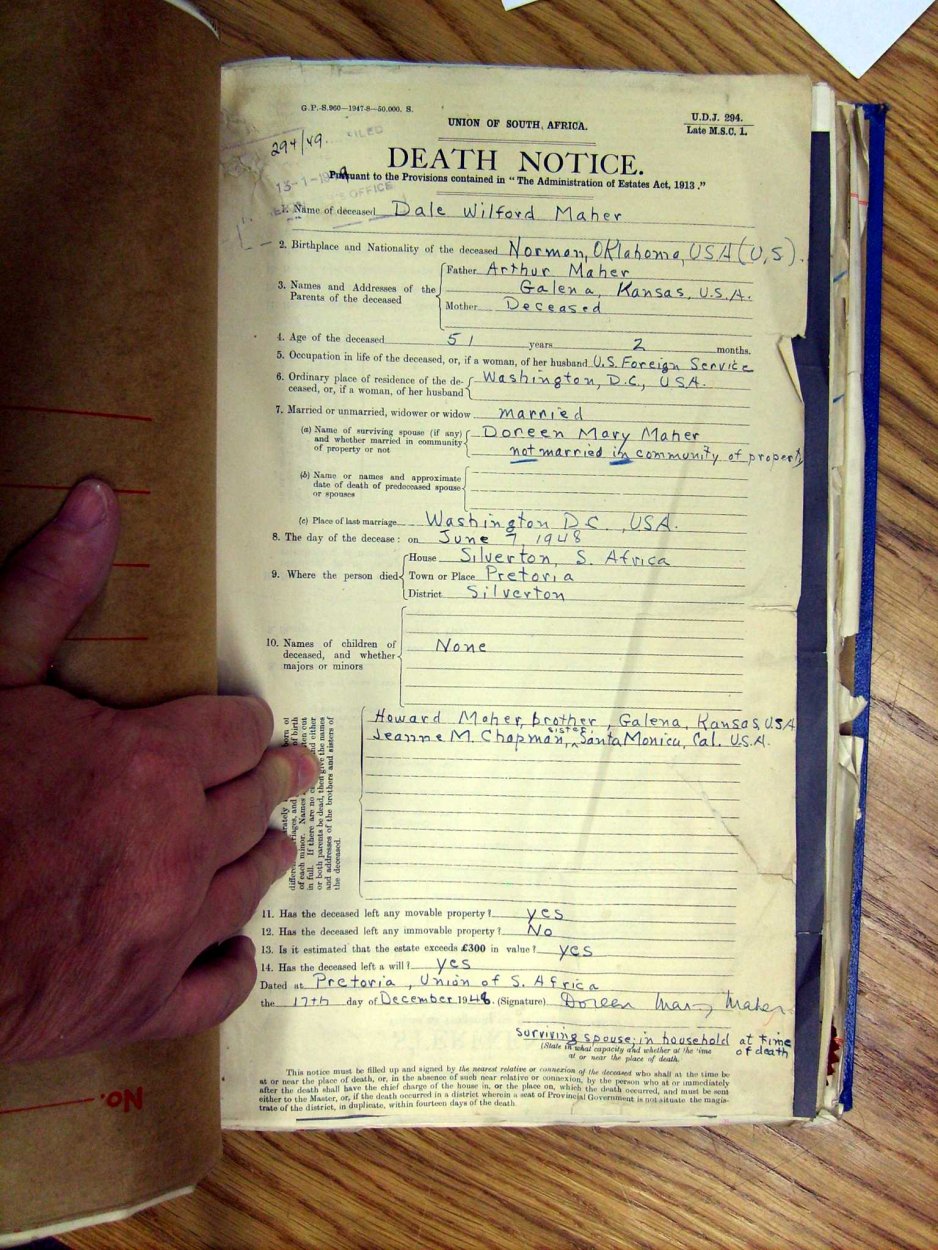 G.P.-S.960—1947-8—50,000. S.
UNION OF SOUTH AFRICA.
U.D.J. 294.
Late M.S.C. 1.
294/49.
FILED
DEATH NOTICE.
Pursuant to the Provisions contained in "The Administration of Estates Act, 1913."
13-1-19
OFFICE
1. Name of deceased Dale Wilford Maher
2. Birthplace and Nationality of the deceased Norman, Oklahoma, USA (U.S).
3. Names and Addresses of the Parents of the deceased
Father Arthur Maher
Galena, Kansas, U.S.A.
Mother Deceased
4. Age of the deceased 51 years 2 months.
5. Occupation in life of the deceased, or, if a woman, of her husband U.S. Foreign Service
6. Ordinary place of residence of the de-
ceased, or, if a woman, of her husband
Washington, D.C., USA.
7. Married or unmarried, widower or widow married
(a) Name of surviving spouse (if any)
and whether married in community
of property or not
Doreen Mary Maher
not married in community of property
(b) Name or names and approximate
date of death of predeceased spouse
or spouses
(c) Place of last marriage Washington D.C., USA.
8. The day of the decease: on June 7, 1948
9. Where the person died
House Silverton, S. Africa
Town or Place Pretoria
District Silverton
10. Names of children of
deceased, and whether
majors or minors
None
of birth
either
of each minor. Names
in full. If there are no
or both parents be dead, then give the names
and addresses of the brothers and sisters of
the deceased.
Howard Maher, brother, Galena, Kansas, USA
Jeanne M. Chapman, sister, Santa Monica, Cal. U.S.A.
11. Has the deceased left any movable property? yes
12. Has the deceased left any immovable property? No
13. Is it estimated that the estate exceeds £300 in value? yes
14. Has the deceased left a will? yes
Dated at Pretoria, Union of S. Africa
the 17th day of December 1948. (Signature) Doreen Mary Maher
surviving spouse; in household at time of death
(State in what capacity and whether at the time
at or near the place of death.
This notice must be filled up and signed by the nearest relative or connexion of the deceased who shall at the time be
at or near the place of death, or, in the absence of such near relative or connexion, by the person who at or immediately
after the death shall have the chief charge of the house in, or the place on, which the death occurred, and must be sent
either to the Master, or, if the death occurred in a district wherein a seat of Provincial Government is not situate the magis-
trate of the district, in duplicate, within fourteen days of the death.
No.